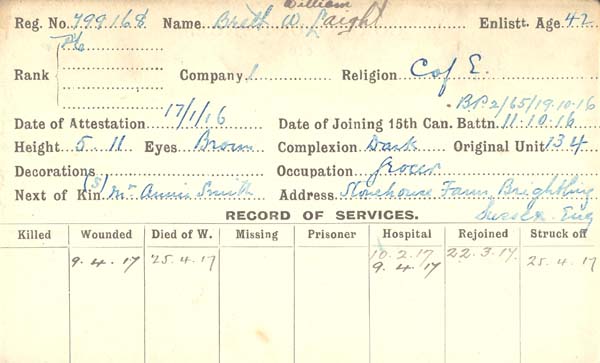 William
Reg. No. 799168 Name Breth W. Laight Enlistt. Age 42
Pte
Rank Company 1 Religion C of E.
B.P.2/65/19.10.16
17/1/16
Date of Attestation Date of Joining 15th Can. Battn. 11.10.16
Height 5.11 Eyes Brown Complexion Dark Original Unit 134
Decorations Occupation Grocer
Next of Kin (S) Mrs Annie Smith Address Stonehouse Farm, Brightling
Sussex Eng
RECORD OF SERVICES.
Killed Wounded Died of W. Missing Prisoner Hospital Rejoined Struck off
10.2.17 22.3.17
9.4.17 25.4.17 9.4.17 25.4.17